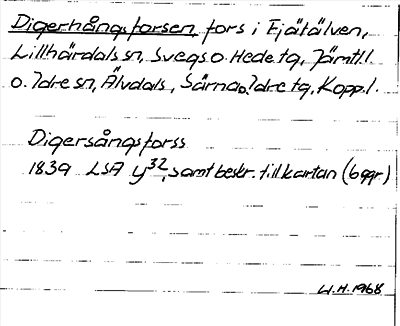 Digerhångsforsen, fors i Fjätälven,
Lillhärdals sn, Svegs o. Hede tg, Jämtl.l.
o. Idre sn, Älvdals, Särna o. Idre tg, Kopp.l.
Digersångsforss
1839 LSA y32, samt beskr. till kartan (6 ggr)
U.H. 1968